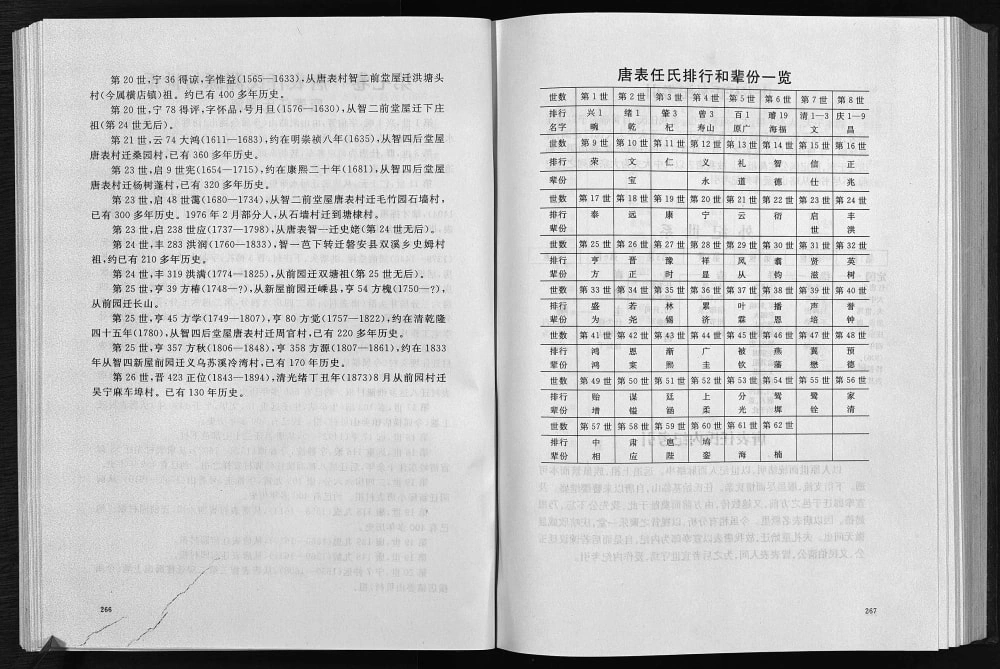 第 20 世,宁 36 得谅,字惟益(1565—1633),从唐表村智二前堂屋迁洪塘头
村(今属横店镇)祖。约已有 400 多年历史。
第 20 世,宁 78 得评,字怀品,号月旦(1576—1630),从智二前堂屋迁下庄
祖(第 24 世无后)。
第 21 世,云 74 大鸿(1611—1683),约在明崇祯八年(1635),从智四后堂屋
唐表村迁桑园村,已有 360 多年历史。
第 23 世,启 9 世宪(1654—1715),约在康熙二十年(1681),从智四后堂屋
唐表村迁杨树蓬村,已有 320 多年历史。
第 23 世,启 48 世霭(1680—1734),从智二前堂屋唐表村迁毛竹园石墙村,
已有 300 多年历史。1976 年 2 月部分人,从石墙村迁到塘棣村。
第 23 世,启 238 世应(1737—1798),从唐表智一迁史姥(第 24 世无后)。
第 24 世,丰 283 洪润(1760—1833),智一芭下转迁磐安县双溪乡史姆村
祖,约已有 210 多年历史。
第 24 世,丰 319 洪满(1774—1825),从前园迁双塘祖(第 25 世无后)。
第 25 世,亨 39 方椿(1748—?),从新屋前园迁嵊县,亨 54 方槐(1750—?),
从前园迁长山。
第 25 世,亨 45 方学(1749—1807),亨 80 方觉(1757—1822),约在清乾隆
四十五年(1780),从智四后堂屋唐表村迁周官村,已有 220 多年历史。
第 25 世,亨 357 方秋(1806—1848),亨 358 方源(1807—1861),约在 1833
年从智四新屋前园迁义乌苏溪冷湾村,已有 170 年历史。
第 26 世,晋 423 正位(1843—1894),清光绪丁丑年(1873)8 月从前园村迁
吴宁麻车埠村。已有 130 年历史。
266
唐表任氏排行和辈份一览
世数 第 1 世 第 2 世 第 3 世 第 4 世 第 5 世 第 6 世 第 7 世 第 8 世
排行 兴 1 绪 1 肇 3 曾 3 百 1 璿 19 清 1—3 庆 1—9
名字 畴 乾 杞 寿山 原广 海福 文 昌
世数 第 9 世 第 10 世 第 11 世 第 12 世 第 13 世 第 14 世 第 15 世 第 16 世
排行 荣 文 仁 义 礼 智 信 正
辈份 宝 永 道 德 仕 兆
世数 第 17 世 第 18 世 第 19 世 第 20 世 第 21 世 第 22 世 第 23 世 第 24 世
排行 泰 远 康 宁 云 衍 启 丰
辈份 世 洪
世数 第 25 世 第 26 世 第 27 世 第 28 世 第 29 世 第 30 世 第 31 世 第 32 世
排行 亨 晋 豫 祥 凤 翥 贤 英
辈份 方 正 时 显 从 钧 滋 树
世数 第 33 世 第 34 世 第 35 世 第 36 世 第 37 世 第 38 世 第 39 世 第 40 世
排行 盛 若 林 累 叶 播 声 誉
辈份 为 尧 锡 济 霖 恩 培 钟
世数 第 41 世 第 42 世 第 43 世 第 44 世 第 45 世 第 46 世 第 47 世 第 48 世
排行 鸿 恩 渐 广 被 燕 冀 预
辈份 鸿 寀 熙 圭 钦 藩 懋 德
世数 第 49 世 第 50 世 第 51 世 第 52 世 第 53 世 第 54 世 第 55 世 第 56 世
排行 贻 谋 廷 上 分 鸳 鹭 家
辈份 增 镒 涵 柔 光 墀 铨 清
世数 第 57 世 第 58 世 第 59 世 第 60 世 第 61 世 第 62 世
排行 中 肃 鹿 埼
辈份 相 应 陛 銮 海 楠
267